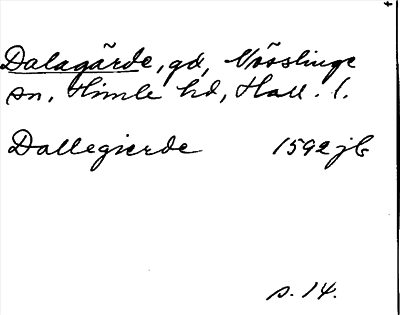 Dalagärde, gd, Nösslinge
sn, Himle hd, Hall. l.
Dallegierde 1592 jb
s. 14.